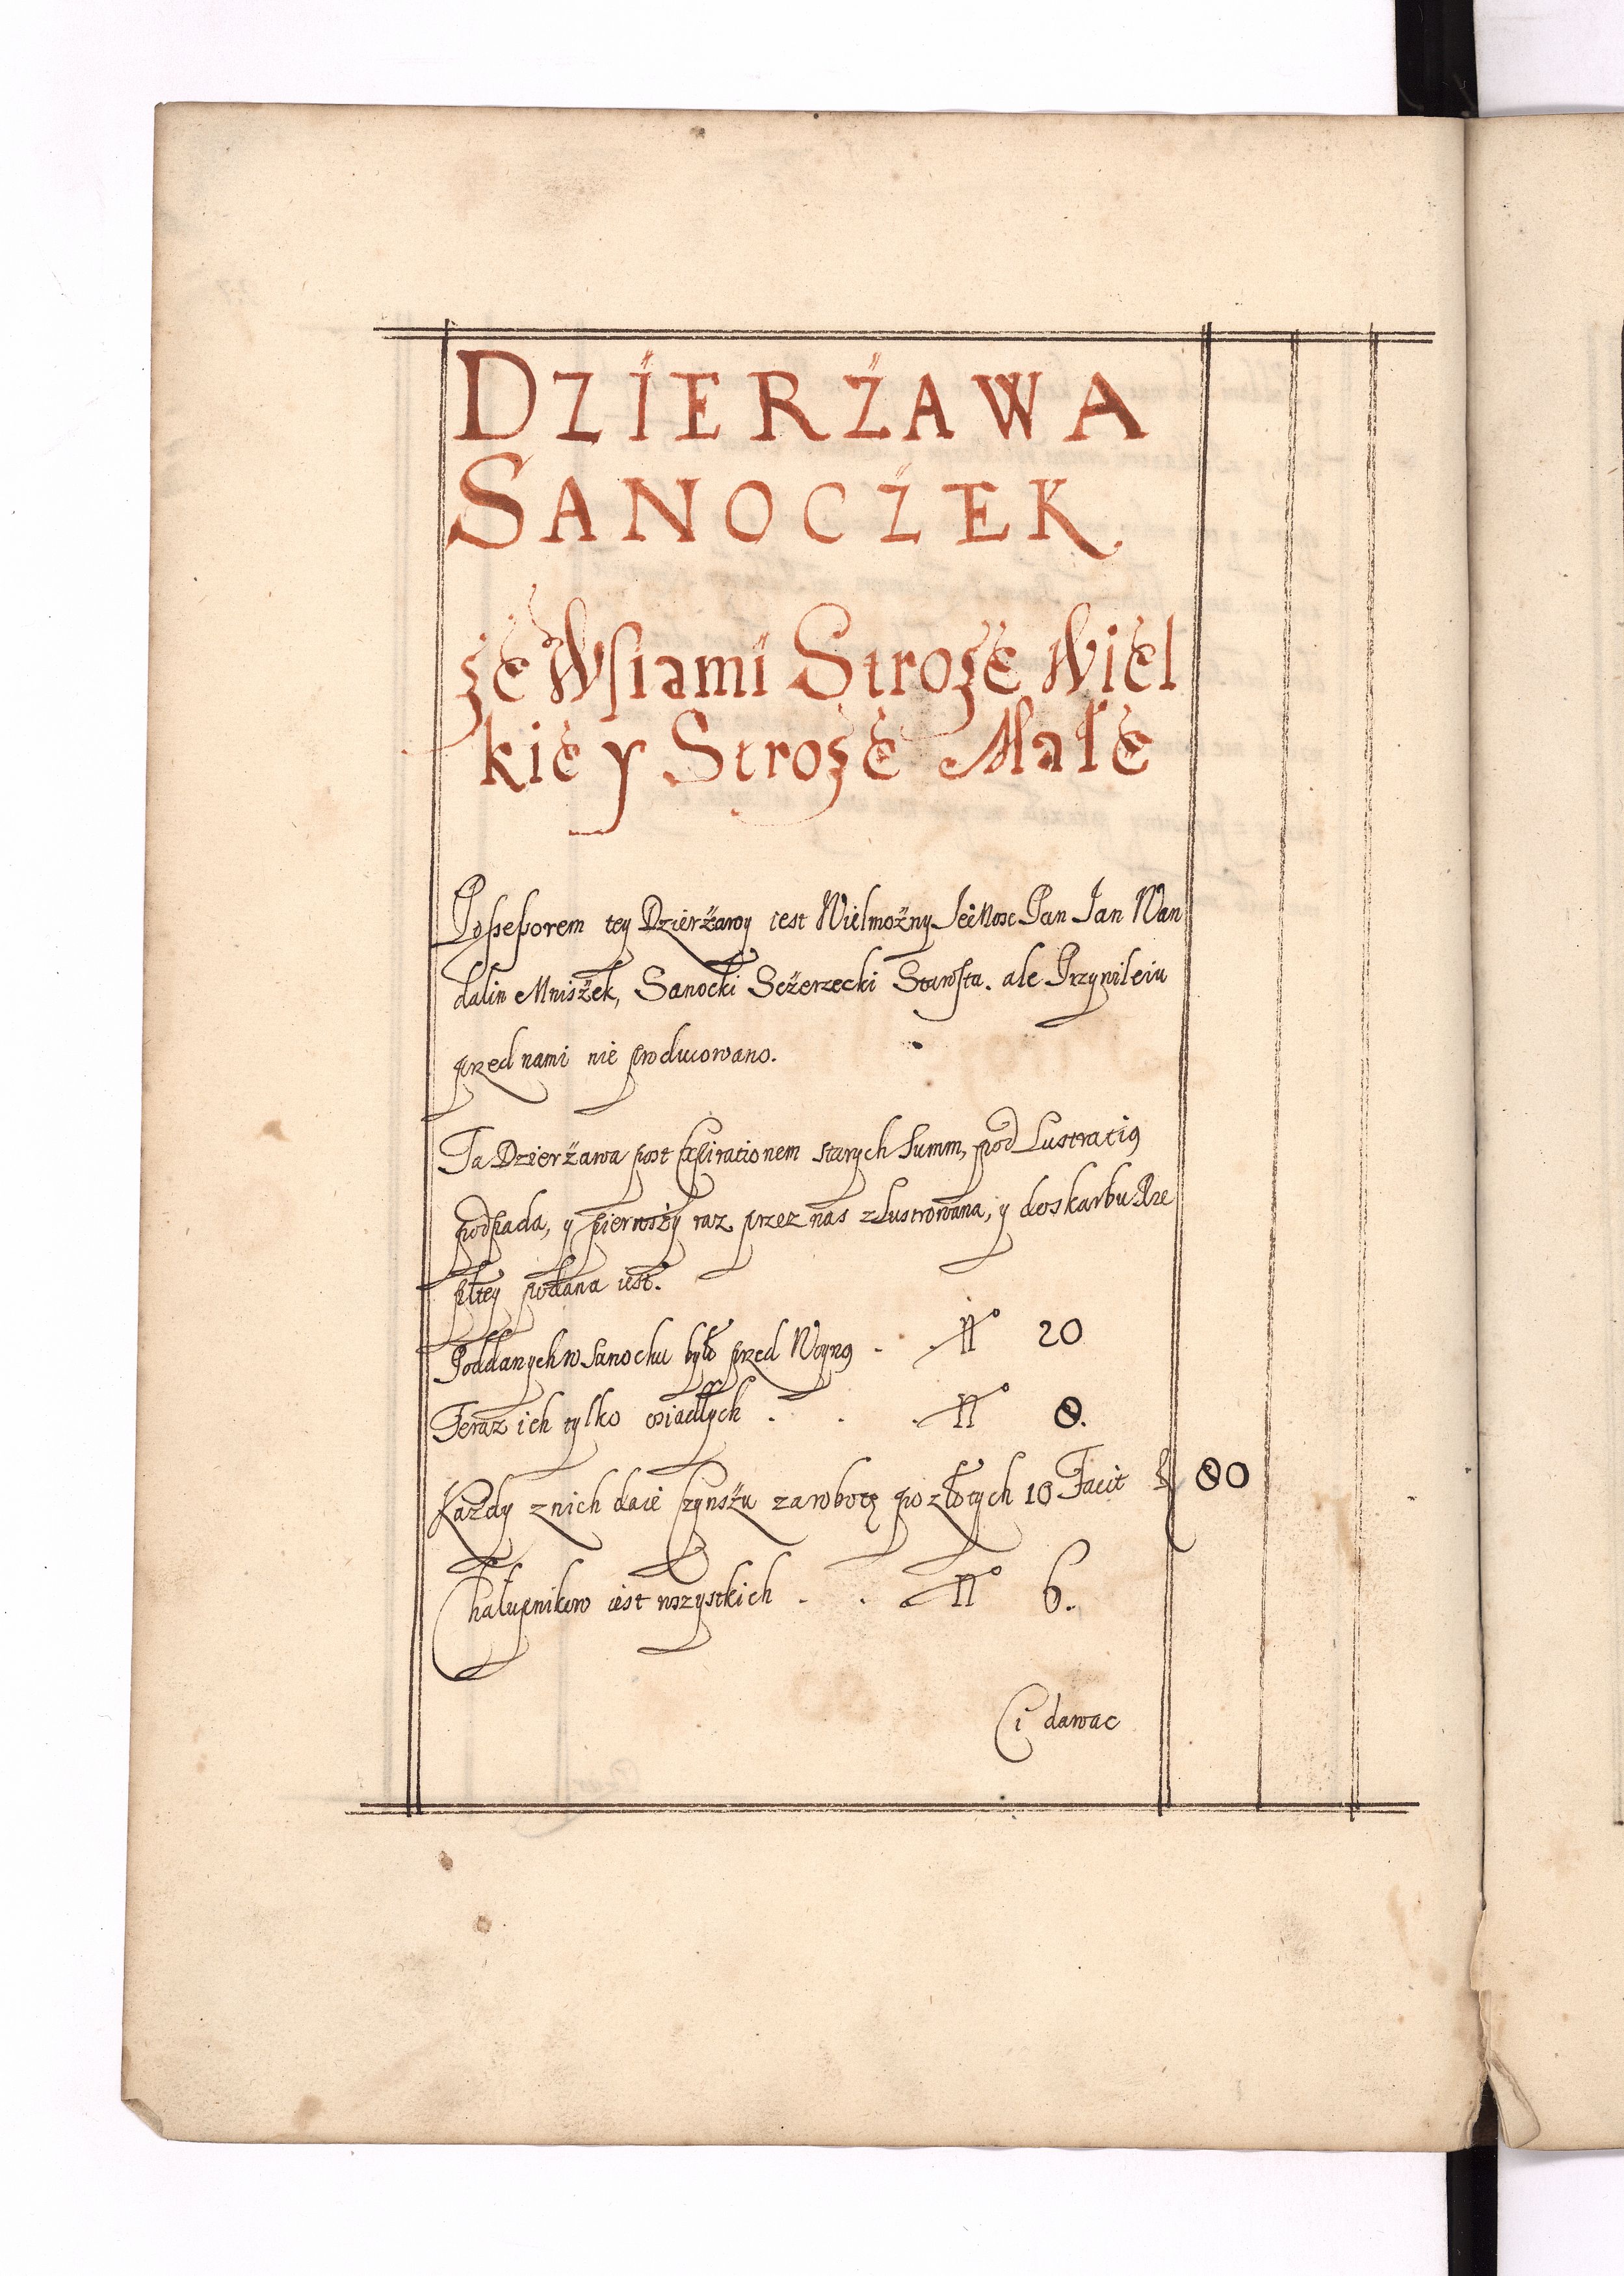 DZIERŻAWA
SANOCŻEK
ze Wsiami Stroze Wiel
kie y Stroze Małe
Possessorem tey Dzierżawy iest Wielmożny JeMosc Pan Jan Wan
dalin Mniszek, Sanocki Sczerzecki Starosta. ale Przywileiu
przed nami nie producowano.
Ta Dzierżawa post Expirationem starych Summ, pod Lustratią
podpada, y pierwszy raz przez nas zLustrowana, y do skarbu Rze
pltey podana iest.
Poddanych w Sanochu było przed Woyną . . No 20
Teraz ich tylko osiadłych . . . No 8.
Każdy z nich daie Czynszu za robotę po złotych 10 Facit fl 80
Chałupnikow iest wszystkich . . No 6.
Ci dawac